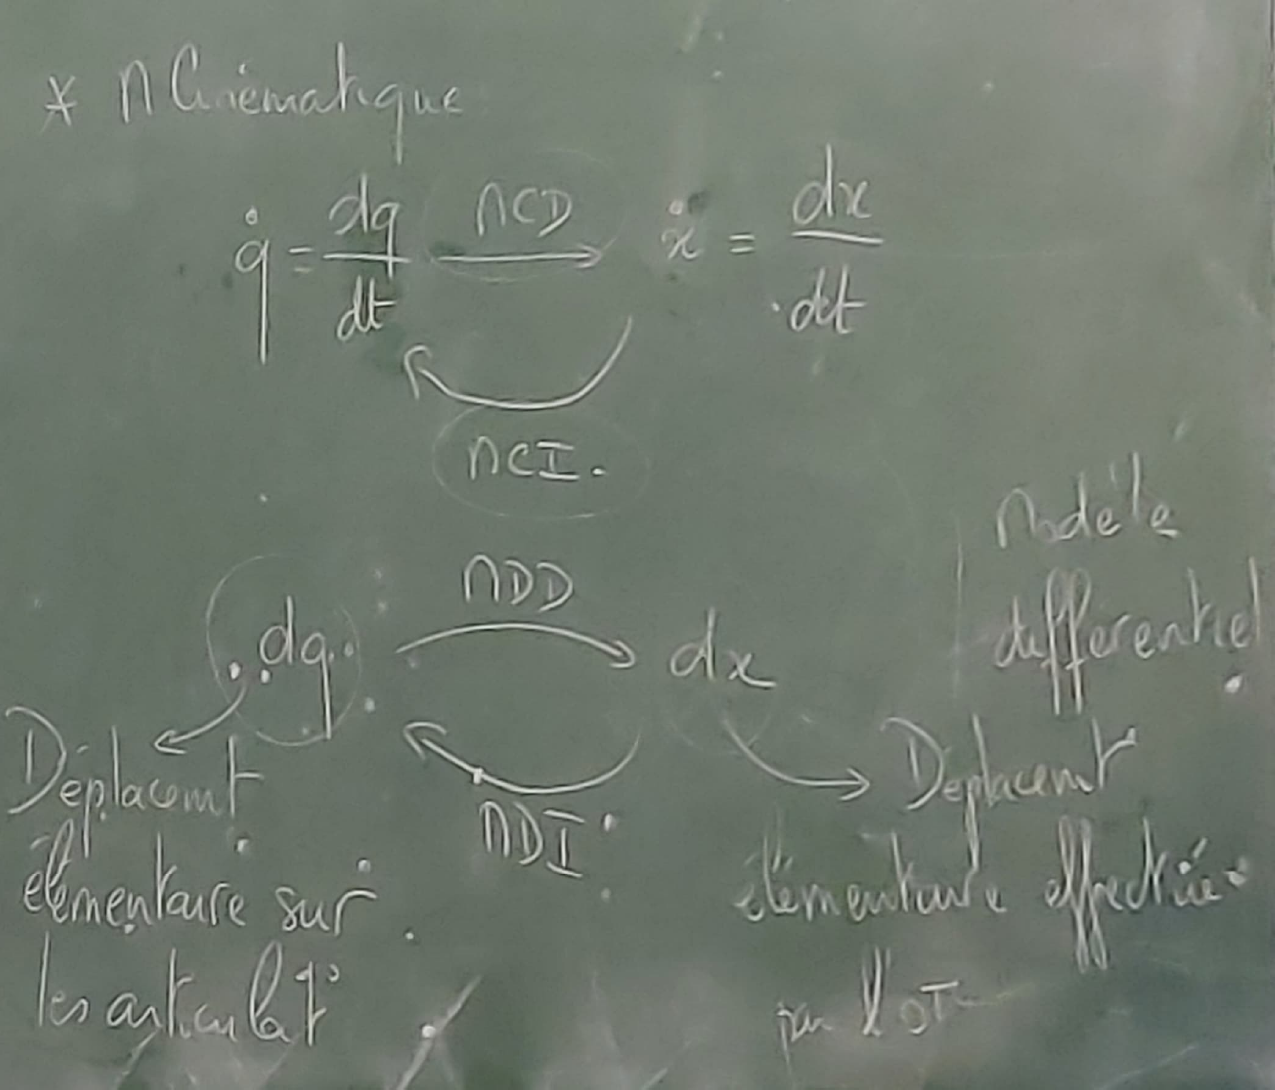 * M Cinématique
q̇ = dq/dt MCD ẋ = dx/dt
MCI.
Modèle
différentiel
MDD
dq dx
MDI
Déplacemt
élémentaire sur
les articulat°
Déplacemt
élémentaire effectuée
par l'OT